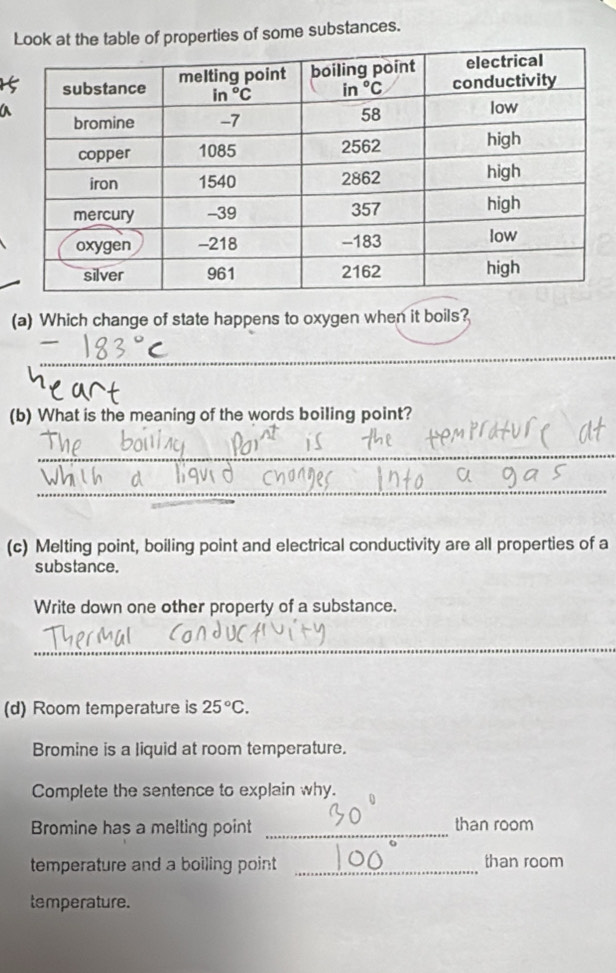 Look at the table of properties of some substances.
substance melting point in °C boiling point in °C electrical conductivity
bromine –7 58 low
copper 1085 2562 high
iron 1540 2862 high
mercury –39 357 high
oxygen –218 –183 low
silver 961 2162 high
(a) Which change of state happens to oxygen when it boils?
– 183°c
heart
(b) What is the meaning of the words boiling point?
The boiling point is the temprature at
which a liquid changes into a gas
(c) Melting point, boiling point and electrical conductivity are all properties of a
substance.
Write down one other property of a substance.
Thermal conductivity
(d) Room temperature is 25°C.
Bromine is a liquid at room temperature.
Complete the sentence to explain why.
Bromine has a melting point 30° than room
temperature and a boiling point 100° than room
temperature.